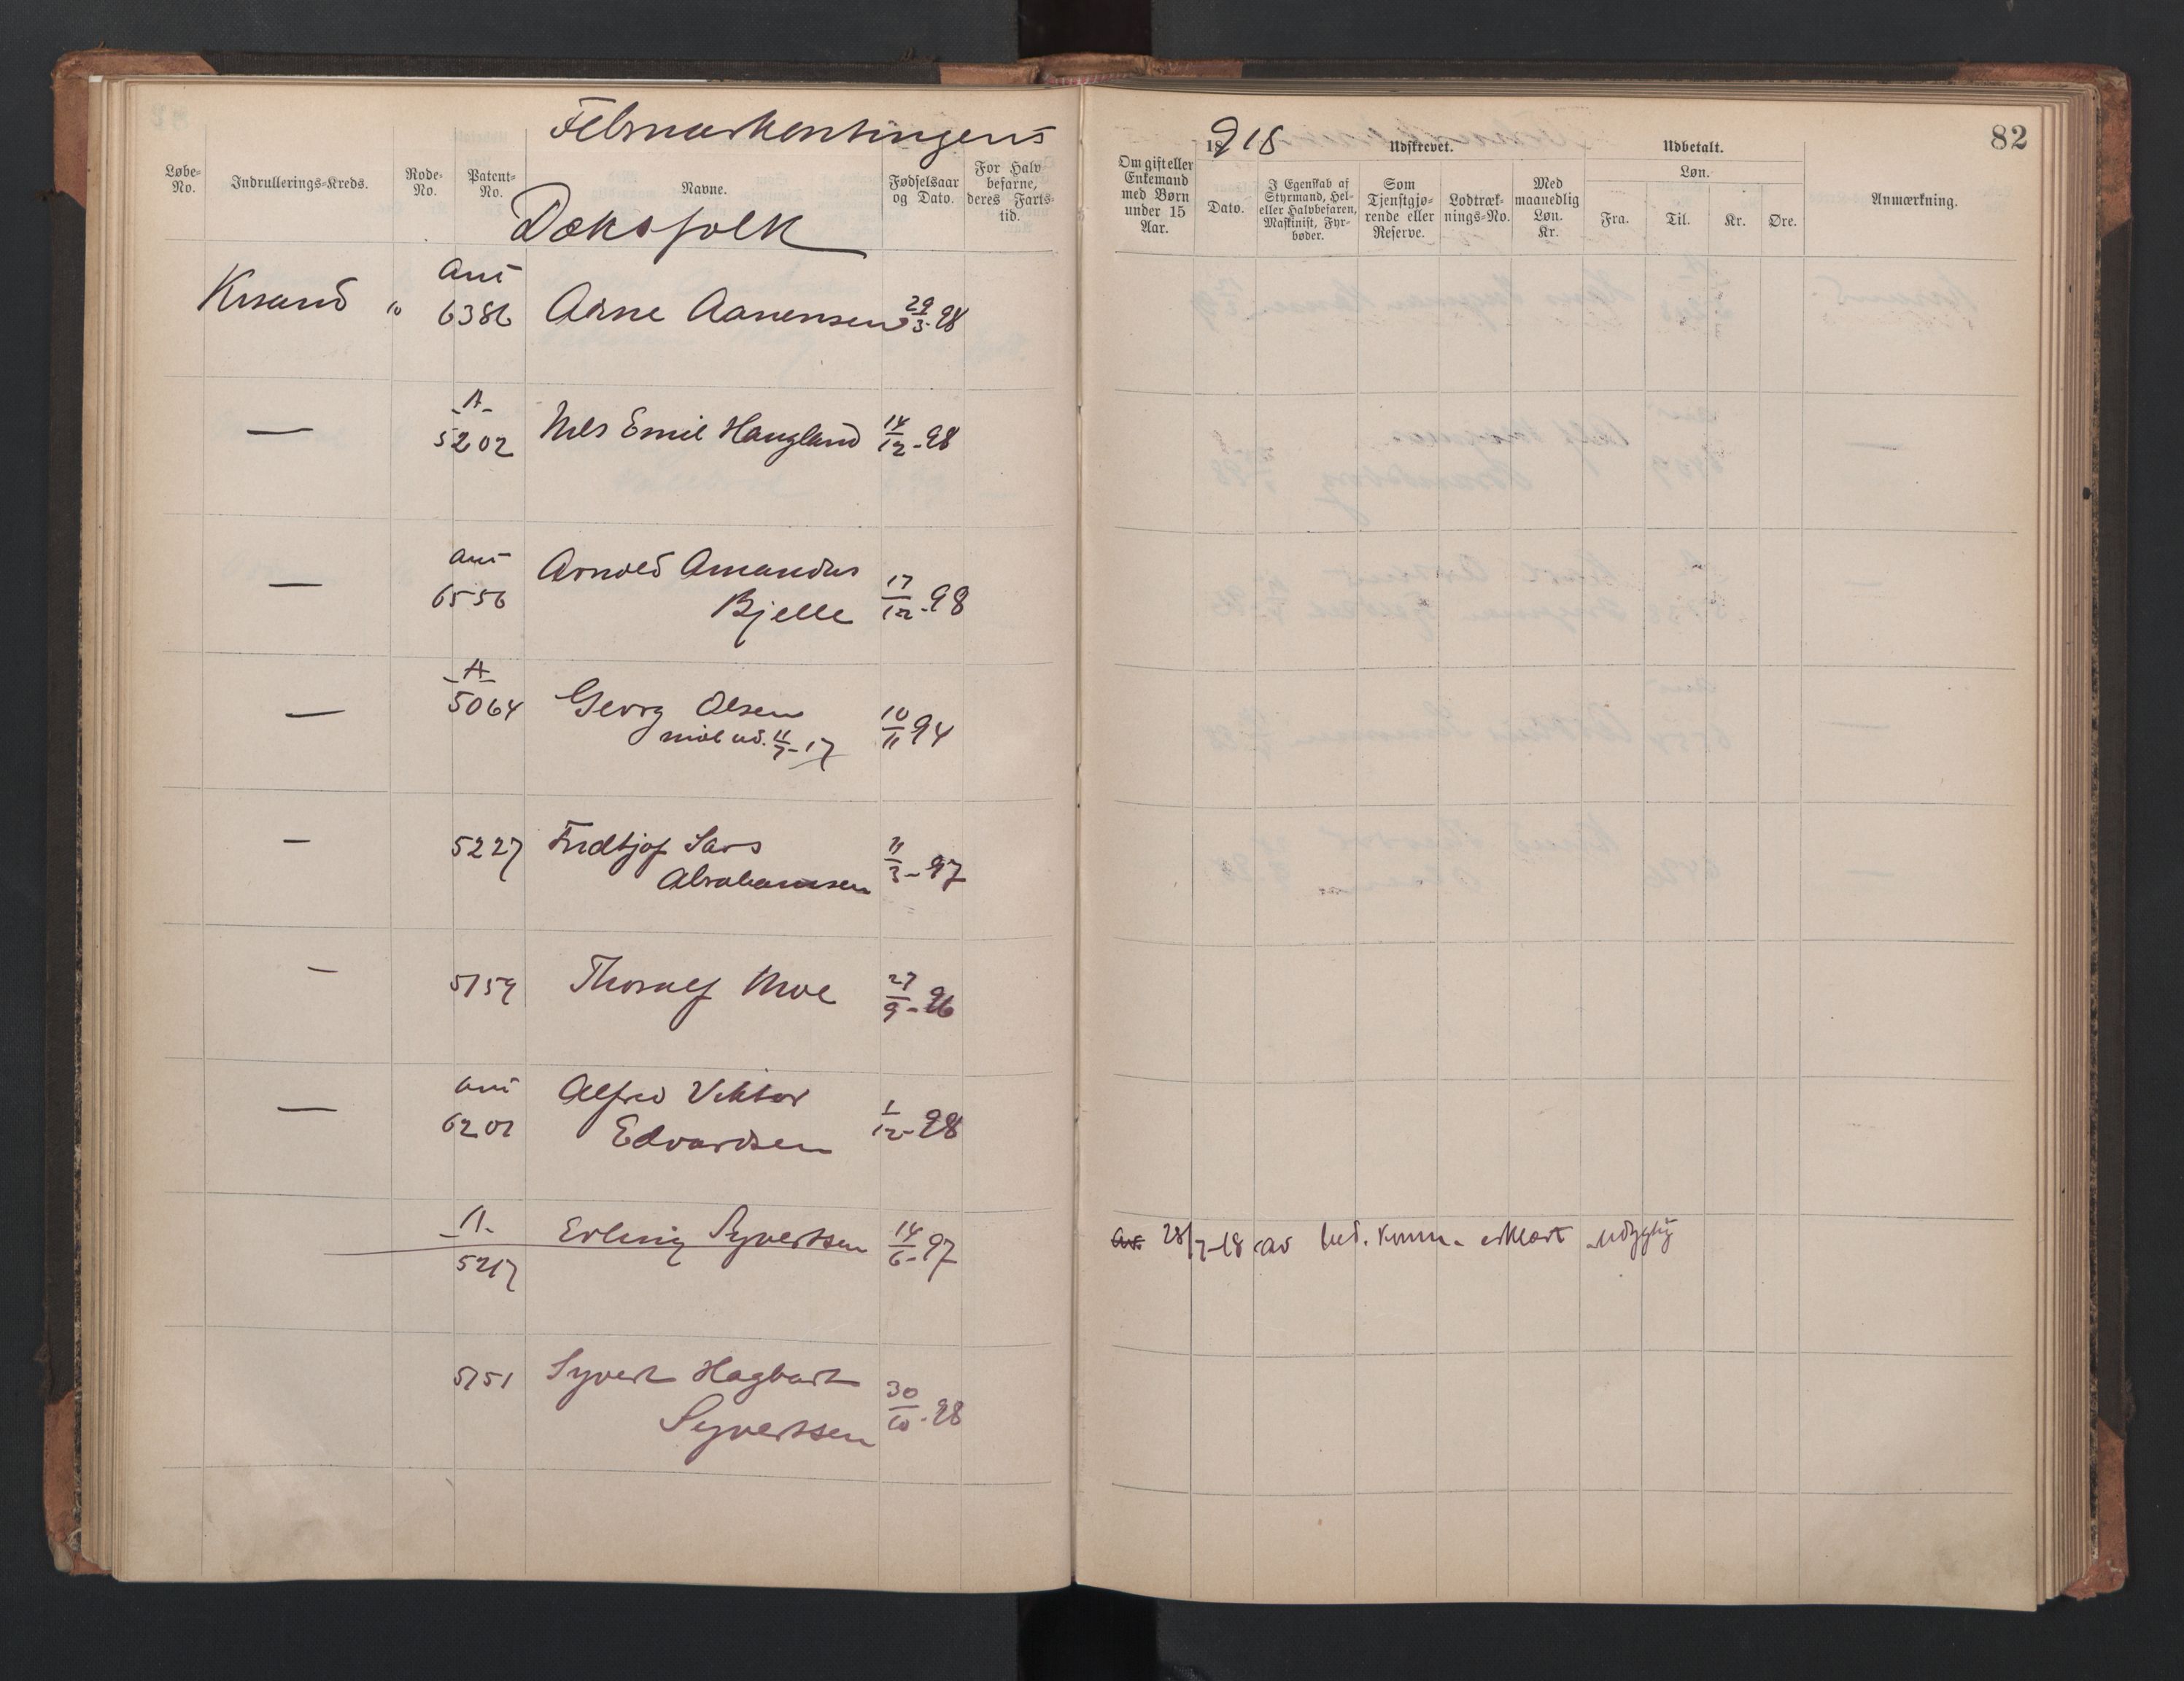 Februarkontingens
1918
82
Løbe-No.
Indrullerings-Kreds.
Rode-No.
Patent-No.
Navne.
Fødselsaar og Dato.
For Halvbefarne, deres Fartstid.
Om gift eller Enkemand med Børn under 15 Aar.
Dato.
Udskrevet.
I Egenskab af Styrmand, Hel- eller Halvbefaren, Maskinist, Fyrbøder.
Som Tjenstgjørende eller Reserve.
Lodtræknings-No.
Med maanedlig Løn. Kr.
Udbetalt.
Løn.
Fra.
Til.
Kr.
Øre.
Anmærkning.
Dæksfolk
Krsand " ant 6386 Arne Aanensen 29/3-98
— A 5202 Nils Emil Haugland 14/12-98
— ant 6556 Arnold Amandus
Bjelle 17/12-98
— A 5064 Georg Olsen 10/11 94
— 5227 Fridtjof Sars
Abrahamsen 11/3-97
— 5159 Thoralf Moe 27/9-96
— ant 6201 Alfred Viktor
Edvardsen 1/12-98
A 5217 Erling Syvertsen 14/6-97 28/7-18 av med. komm. erklært udygtig
5151 Syvert Hagbart
Syvertsen 30/10-98